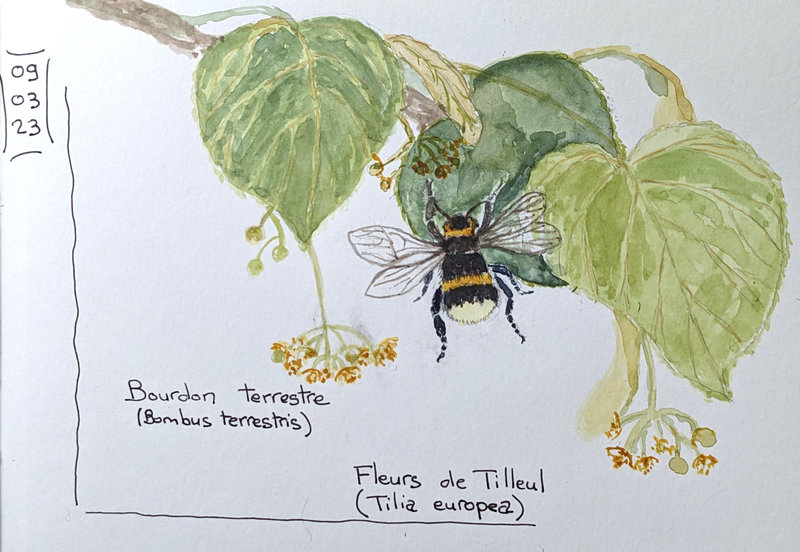 09
03
23
Bourdon terrestre
(Bombus terrestris)
Fleurs de Tilleul
(Tilia europea)